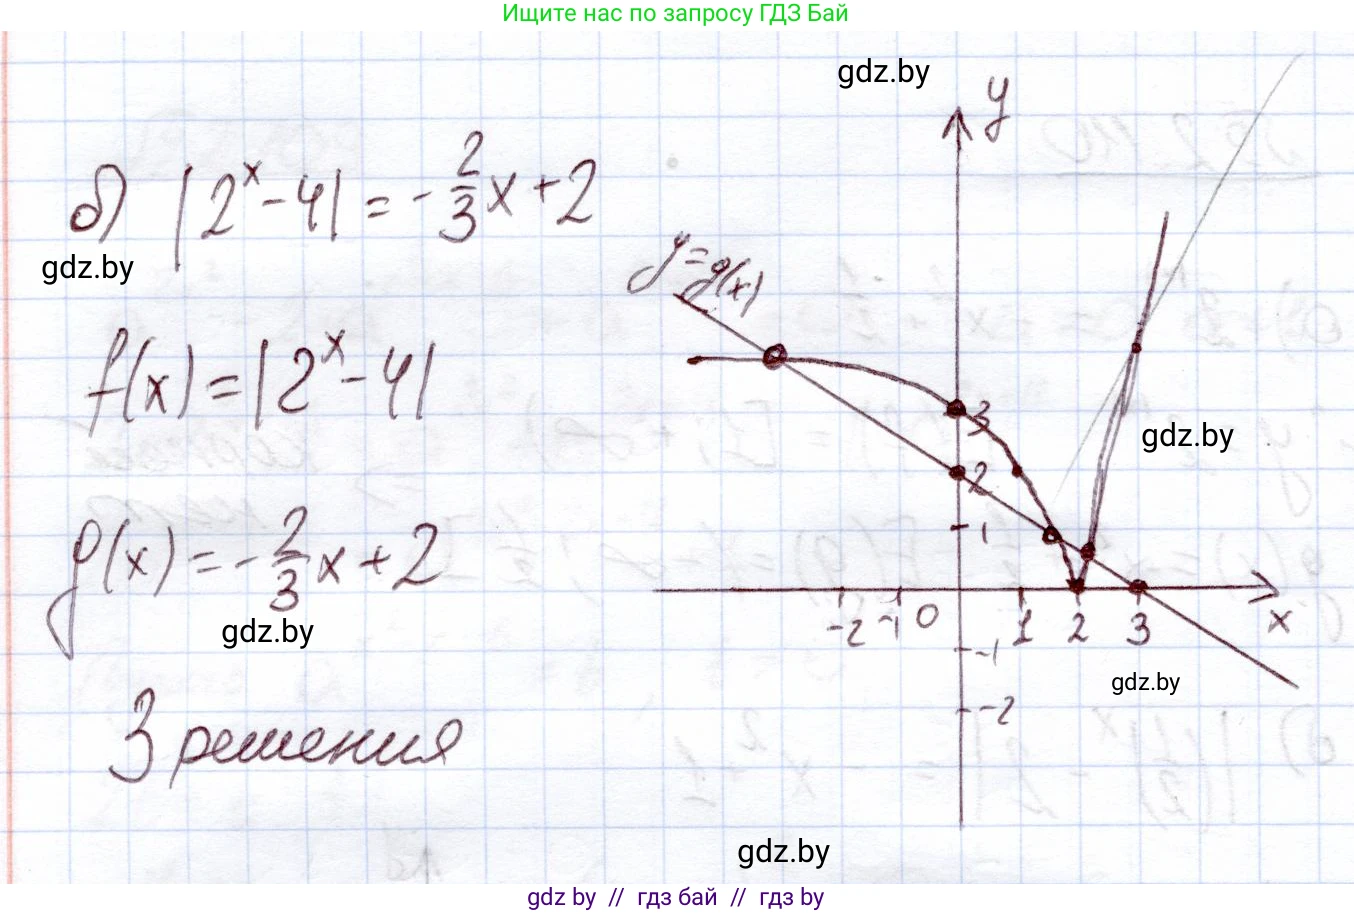 Ищите нас по запросу ГДЗ Бай
gdz.by
y
б) |2^x - 4| = -2/3 x + 2
gdz.by
y = g(x)
f(x) = |2^x - 4|
3
gdz.by
2
g(x) = -2/3 x + 2
1
-2 -1 0 1 2 3 x
gdz.by
-1
gdz.by
-2
3 решения
gdz.by
gdz by // гдз бай // гдз by